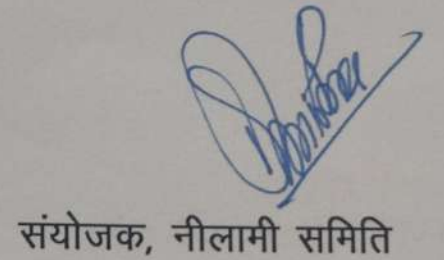 संयोजक, नीलामी समिति